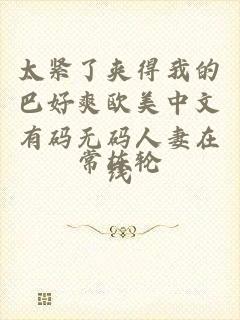 太紧了夹得我的
巴好爽欧美中文
有码无码人妻在
线
常栋轮